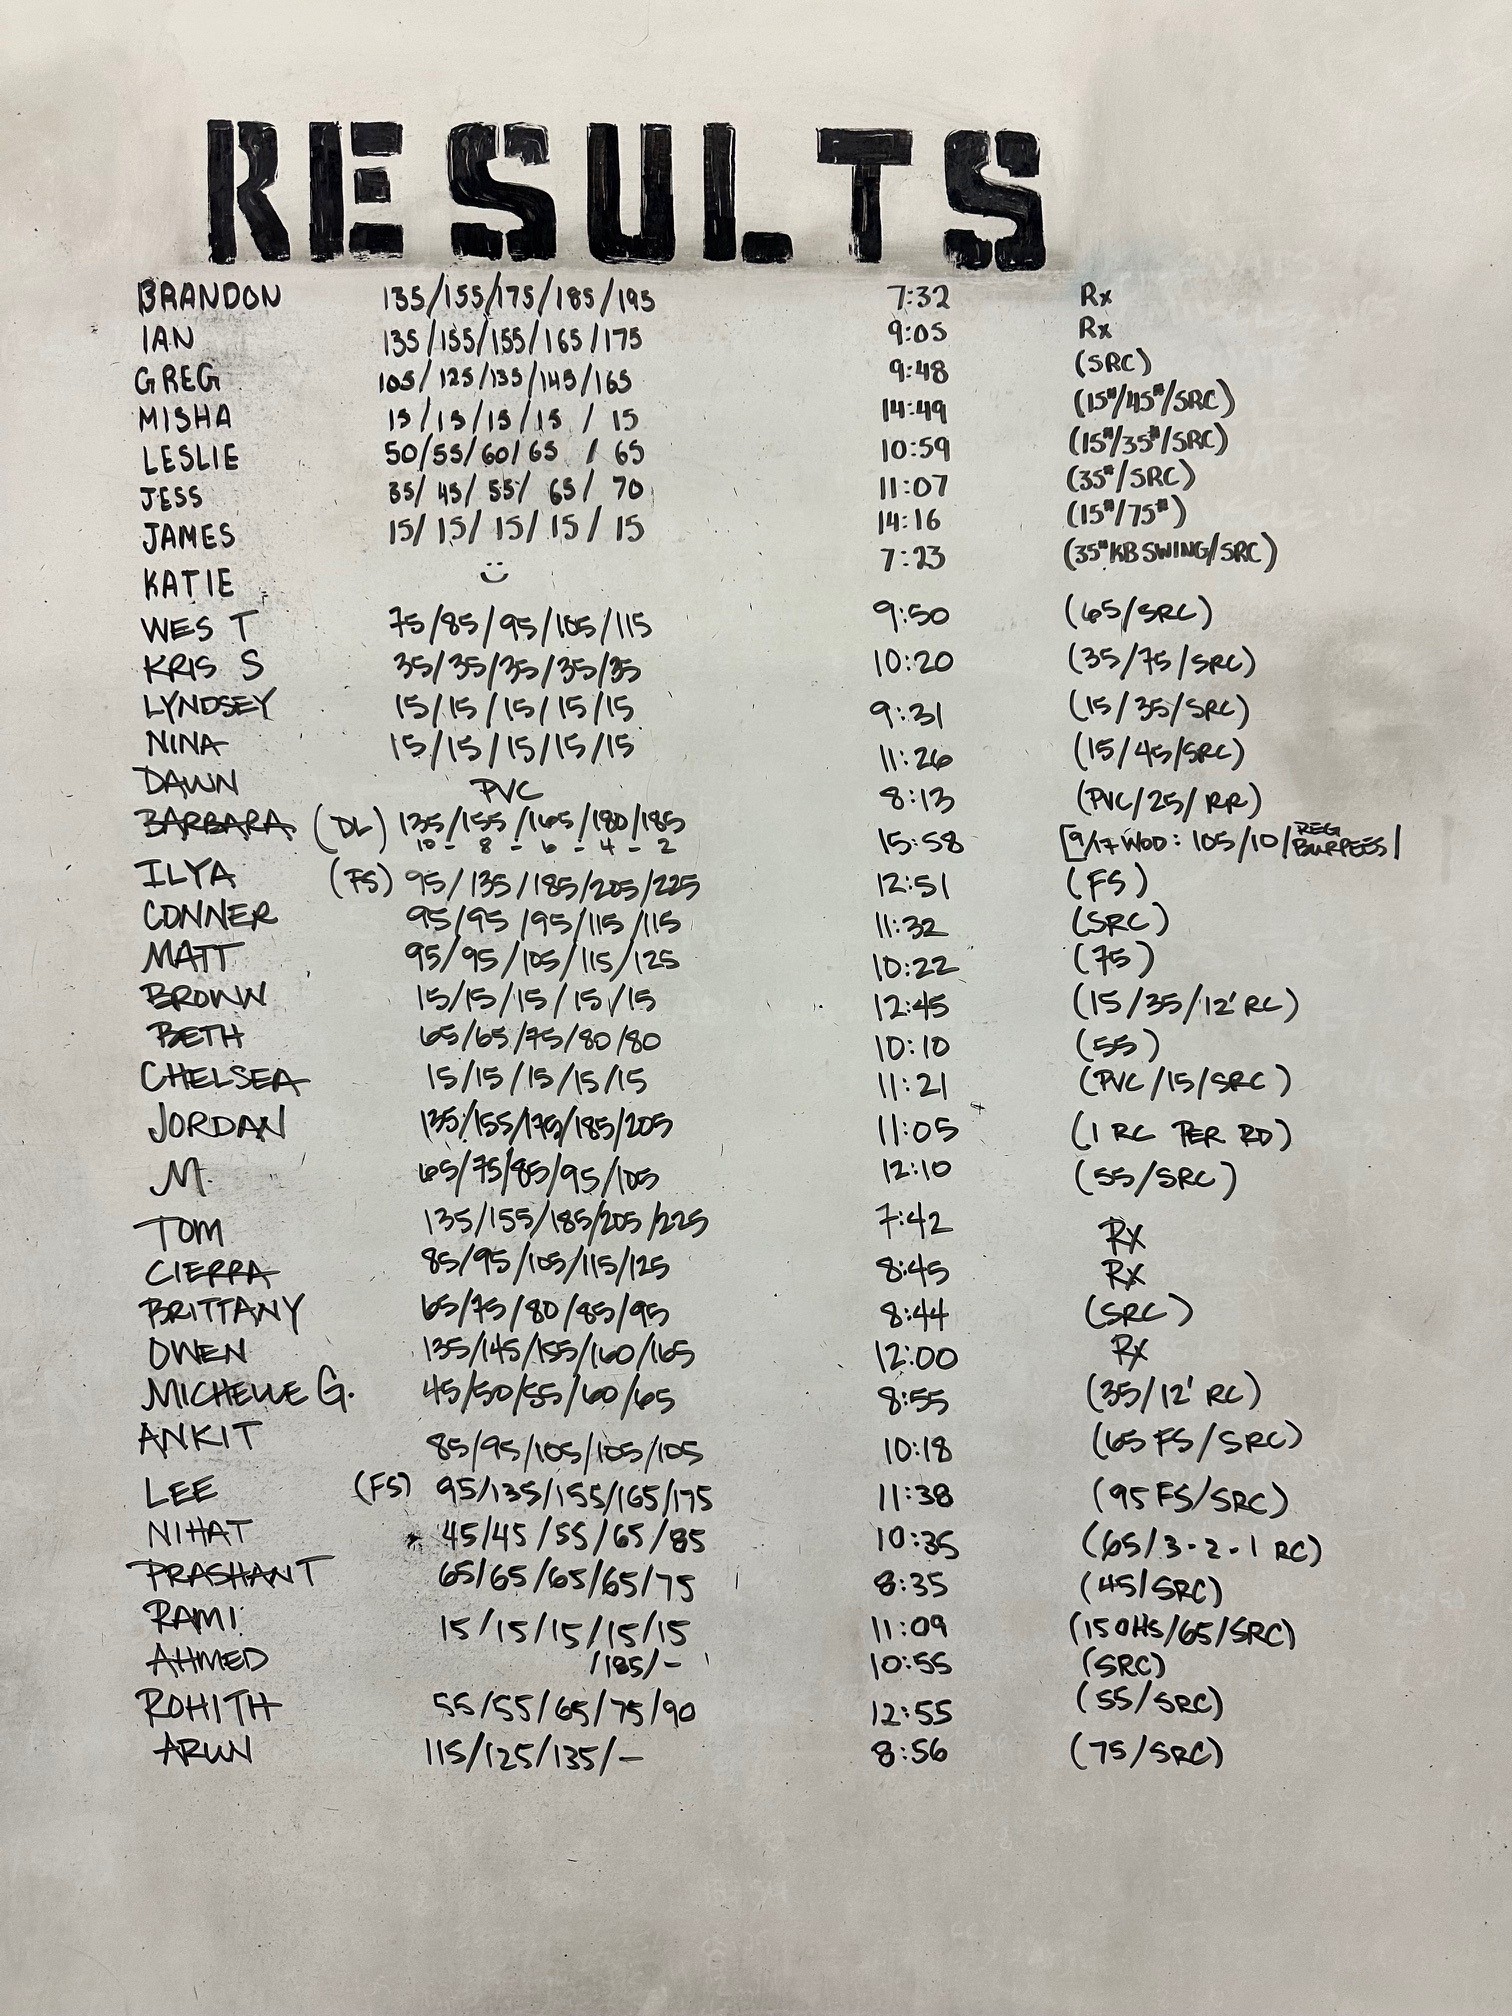 RESULTS
BRANDON 135/155/175/185/195 7:32 Rx
IAN 135/155/155/165/175 9:05 Rx
GREG 105/125/135/145/165 9:48 (SRC)
MISHA 15/15/15/15/15 14:49 (15#/45#/SRC)
LESLIE 50/55/60/65/65 10:59 (15#/35#/SRC)
JESS 35/45/55/65/70 11:07 (35#/SRC)
JAMES 15/15/15/15/15 14:16 (15#/75#)
KATIE 7:23 (35# KB SWING/SRC)
WES T 75/85/95/105/115 9:50 (65/SRC)
KRIS S 35/35/35/35/35 10:20 (35/75/SRC)
LYNDSEY 15/15/15/15/15 9:31 (15/35/SRC)
NINA 15/15/15/15/15 11:26 (15/45/SRC)
DAWN PVC 8:13 (PVC/25/RR)
BARBARA (DL) 135/155/165/180/185 15:58 [9/17 WOD: 105/10/REG BURPEES]
10 - 8 - 6 - 4 - 2
ILYA (FS) 95/135/185/205/225 12:51 (FS)
CONNER 95/95/95/115/115 11:32 (SRC)
MATT 95/95/105/115/125 10:22 (75)
BROWN 15/15/15/15/15 12:45 (15/35/12' RC)
BETH 65/65/75/80/80 10:10 (55)
CHELSEA 15/15/15/15/15 11:21 (PVC/15/SRC)
JORDAN 135/155/175/185/205 11:05 (1 RC PER RD)
M. 65/75/85/95/105 12:10 (55/SRC)
TOM 135/155/185/205/225 7:42 Rx
CIERRA 85/95/105/115/125 8:45 Rx
BRITTANY 65/75/80/85/95 8:44 (SRC)
OWEN 135/145/155/160/165 12:00 Rx
MICHELLE G. 45/50/55/60/65 8:55 (35/12' RC)
ANKIT 85/95/105/105/105 10:18 (65 FS/SRC)
LEE (FS) 95/135/155/165/175 11:38 (95 FS/SRC)
NIHAT 45/45/55/65/85 10:35 (65/3-2-1 RC)
PRASHANT 65/65/65/65/75 8:35 (45/SRC)
RAMI 15/15/15/15/15 11:09 (15 OHS/65/SRC)
AHMED /185/- 10:55 (SRC)
ROHITH 55/55/65/75/90 12:55 (55/SRC)
ARUN 115/125/135/- 8:56 (75/SRC)